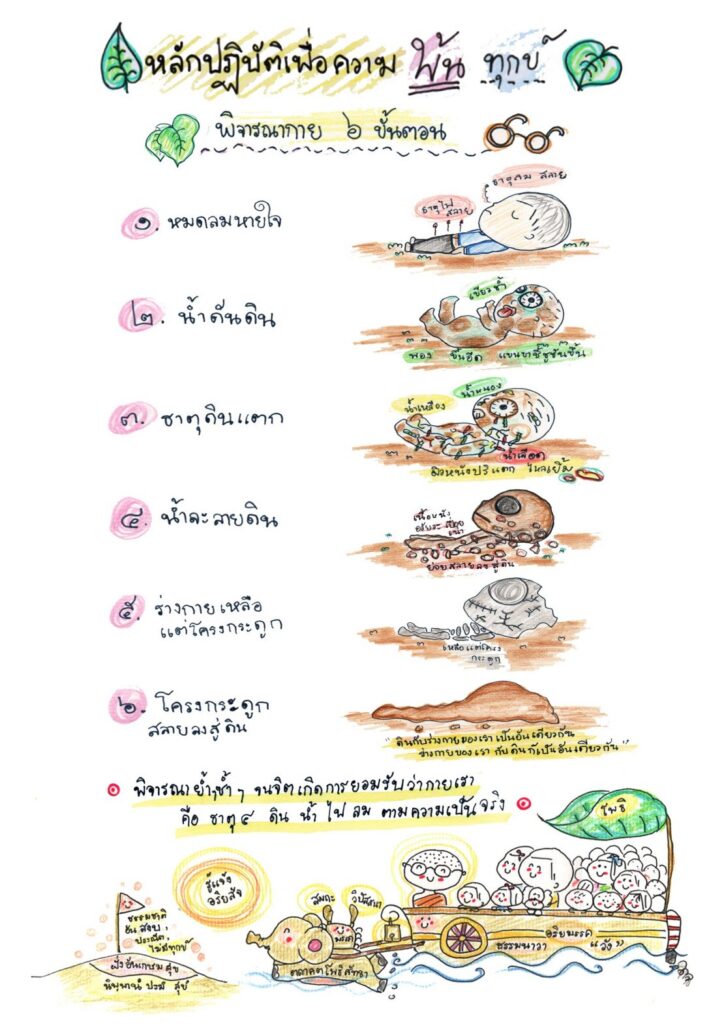 หลักปฏิบัติเพื่อความ พ้น ทุกข์
พิจารณากาย ๖ ขั้นตอน
๑. หมดลมหายใจ
ธาตุลม สลาย
ธาตุไฟ
สลาย
๒. น้ำดันดิน
เขียวช้ำ
พอง ขึ้นอืด แขนขาชี้ชูชันขึ้น
๓. ธาตุดินแตก
น้ำหนอง
น้ำเหลือง
น้ำเลือด
ผิวหนังปริแตก ไหลเยิ้ม
๔. น้ำละลายดิน
เนื้อหนัง
ย่อยสลายลงสู่ดิน
๕. ร่างกายเหลือ
แต่โครงกระดูก
เหลือแต่โครง
กระดูก
๖. โครงกระดูก
สลายลงสู่ดิน
"ดินกับร่างกายของเราเป็นอันเดียวกัน
ร่างกายของเรา กับดินก็เป็นอันเดียวกัน"
พิจารณาย้ำๆซ้ำๆ จนจิตเกิดการยอมรับว่ากายเรา
คือ ธาตุ๔ ดิน น้ำ ไฟ ลม ตามความเป็นจริง
โพธิ
รู้แจ้ง
อริยสัจ
สมถะ วิปัสสนา
มรรค
ธรรมชาติ
อันสงบ,
ประณีต,
ไม่มีทุกข์
ฝั่งอันเกษม สุข
นิพพานํ ปรมํ สุขํ
ตถาคตโพธิศรัทธา
อริยมรรค
ธรรมนาวา "วัง"